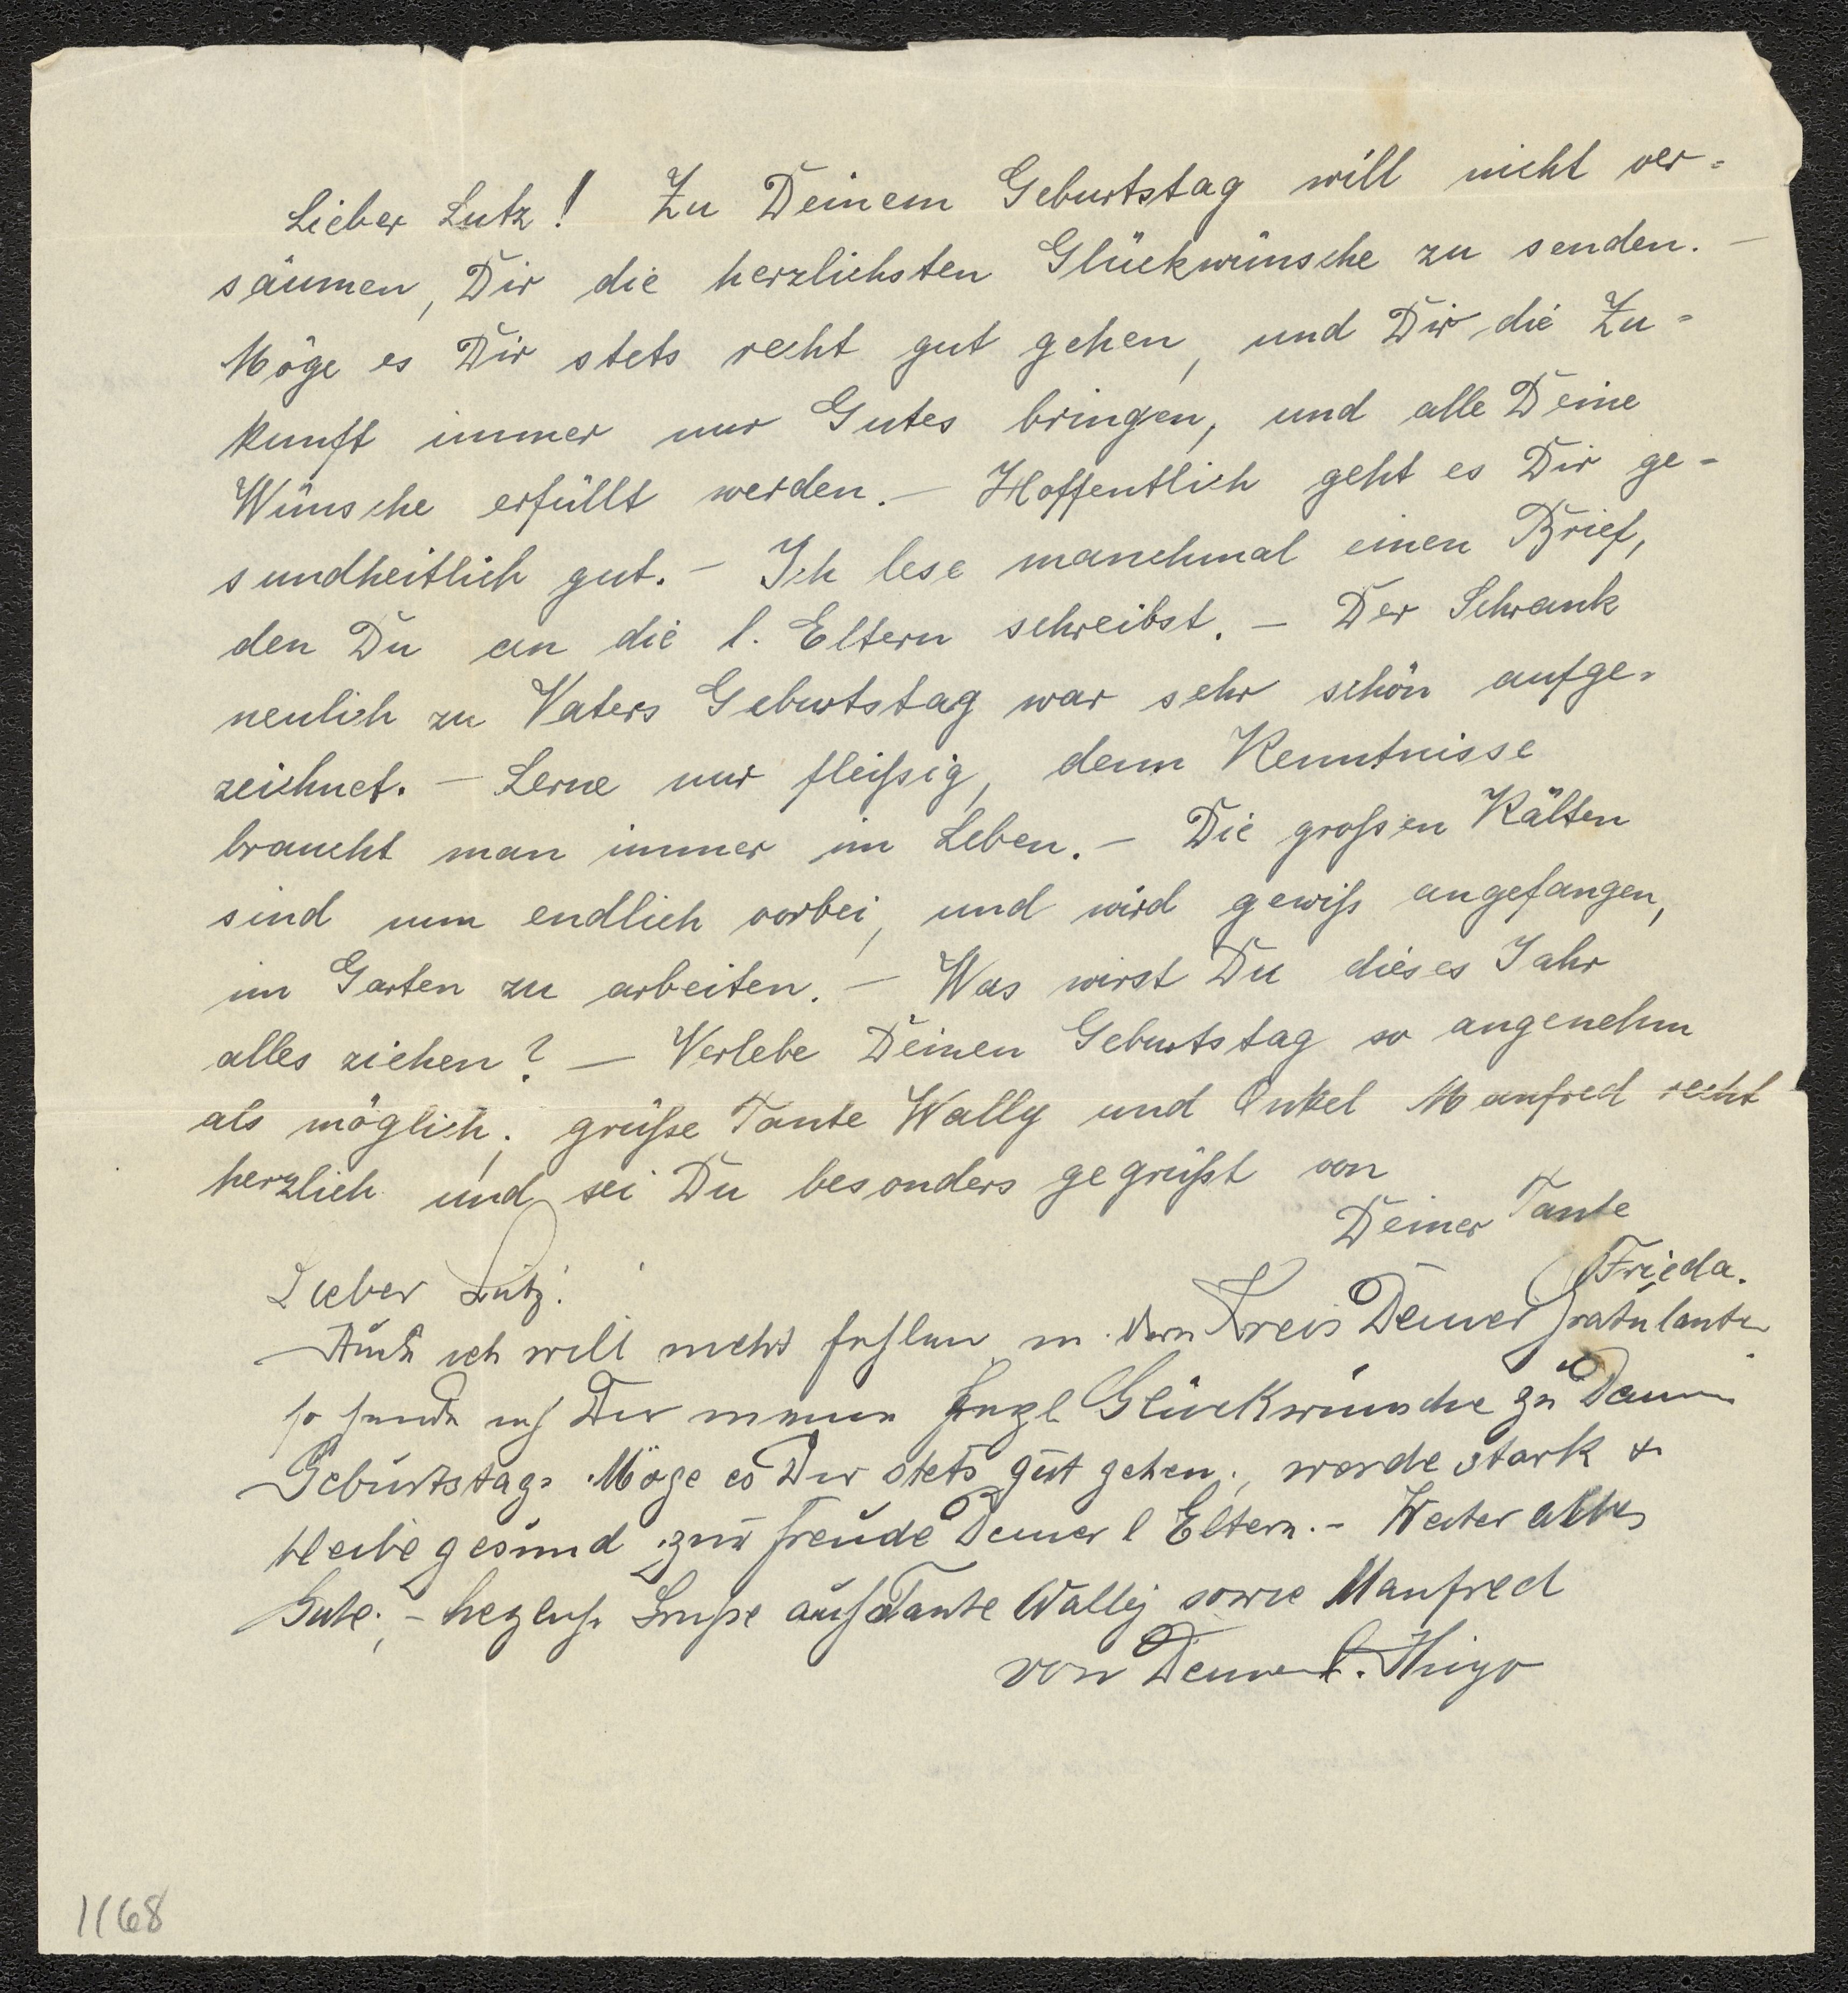 Lieber Lutz! Zu Deinem Geburtstag will nicht ver=
säumen, Dir die herzlichsten Glückwünsche zu senden. —
Möge es Dir stets recht gut gehen, und Dir die Zu=
kunft immer nur Gutes bringen, und alle Deine
Wünsche erfüllt werden. — Hoffentlich geht es Dir ge-
sundheitlich gut. — Ich lese manchmal einen Brief,
den Du an die l. Eltern schreibst. — Der Schrank
neulich zu Vaters Geburtstag war sehr schön aufge-
zeichnet. — Lerne nur fleißig, denn Kenntnisse
braucht man immer im Leben. — Die großen Kälten
sind nun endlich vorbei, und wird gewiß angefangen,
im Garten zu arbeiten. — Was wirst Du dieses Jahr
alles ziehen? — Verlebe Deinen Geburtstag so angenehm
als möglich; grüße Tante Wally und Onkel Manfred recht
herzlich und sei Du besonders gegrüßt von
Deiner Tante
Frieda.
Lieber Lutz!
Auch ich will nicht fehlen in dem Kreis Deiner Gratulanten
so sende ich Dir meine herzl Glückwünsche zu Deinem
Geburtstag. Möge es Dir stets gut gehen, werde stark &
bleibe gesund zur Freude Deiner l Eltern. — Weiter alles
Gute. — herzlich Grüße auch Tante Wally sowie Manfred
von Deinem Hugo
1168